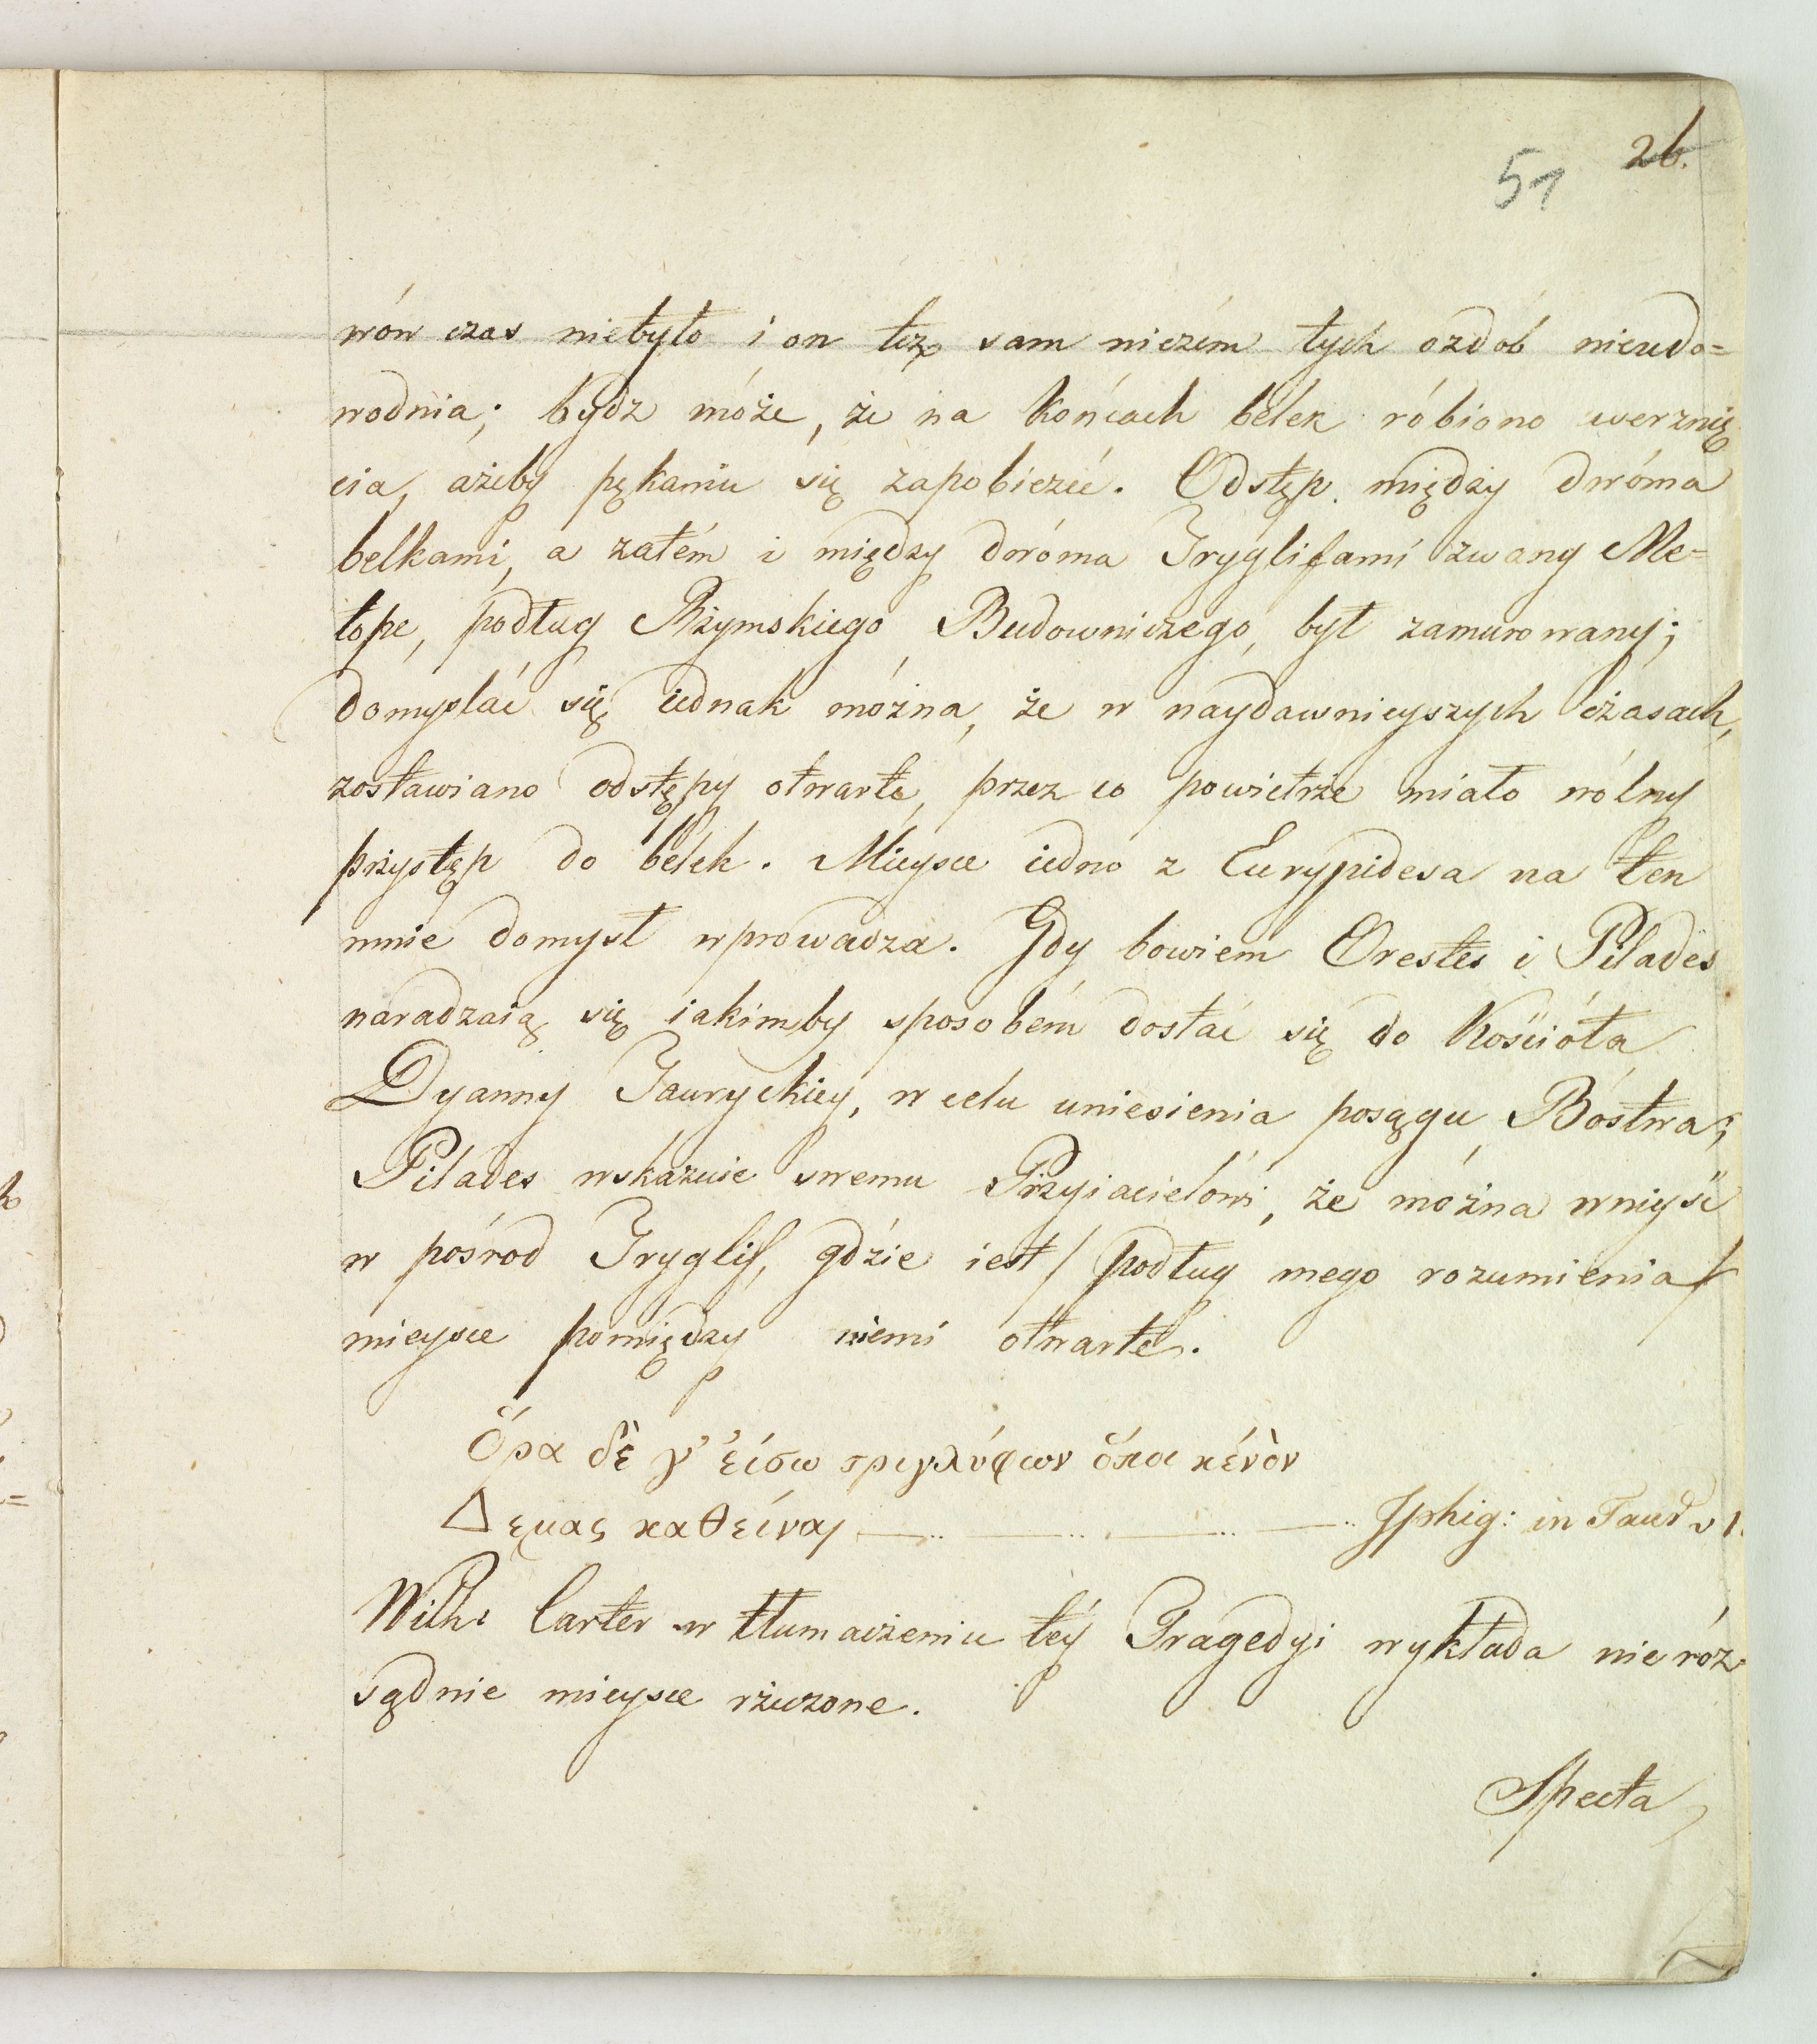 26.
51
wów czas niebyło i on też sam niczém tych ozdób nieudo=
wodnia; bydz móże, że na końcach belek róbiono werznię
cia, ażeby pękaniu się zapobiezéć. Odstęp między dwóma
belkami, a zatém i między dwóma Tryglifami zwany Me=
tope, podług Rżymskiego Budowniczego, był zamurowany;
domyslać się iednak móżna, że w naydawnieyszych czasach,
zostawiano odstępy otwarte, przez co powietrże miało wólny
pżystęp do belek. Mieysce iedno z Eurypidesa na ten
mnie domysł wprowadza. Gdy bowiem Orestes i Pilades
naradzaią się iakimby sposobém dostać się do Kościóła
Dyanny Tauryckiey, w celu uniesienia posągu Bóstwa;
Pilades wskazuie swemu Przyiacielówi, że móżna wniyść
w pośrod Tryglif, gdzie iest / podług mego rozumienia /
mieysce pomiędzy niemi otwarte.
Ὅρα δὲ γ' εἴσω τριγλύφων ὅποι κένὸν
Δεμας καθεῖναι — .. — .. — .. — .. Jphig: in Taur v 1.
Wilh: Carter w tłumaczeniu téy Tragedyi wykłada nieróz
sądnie mieysce rżuczone.
Specta